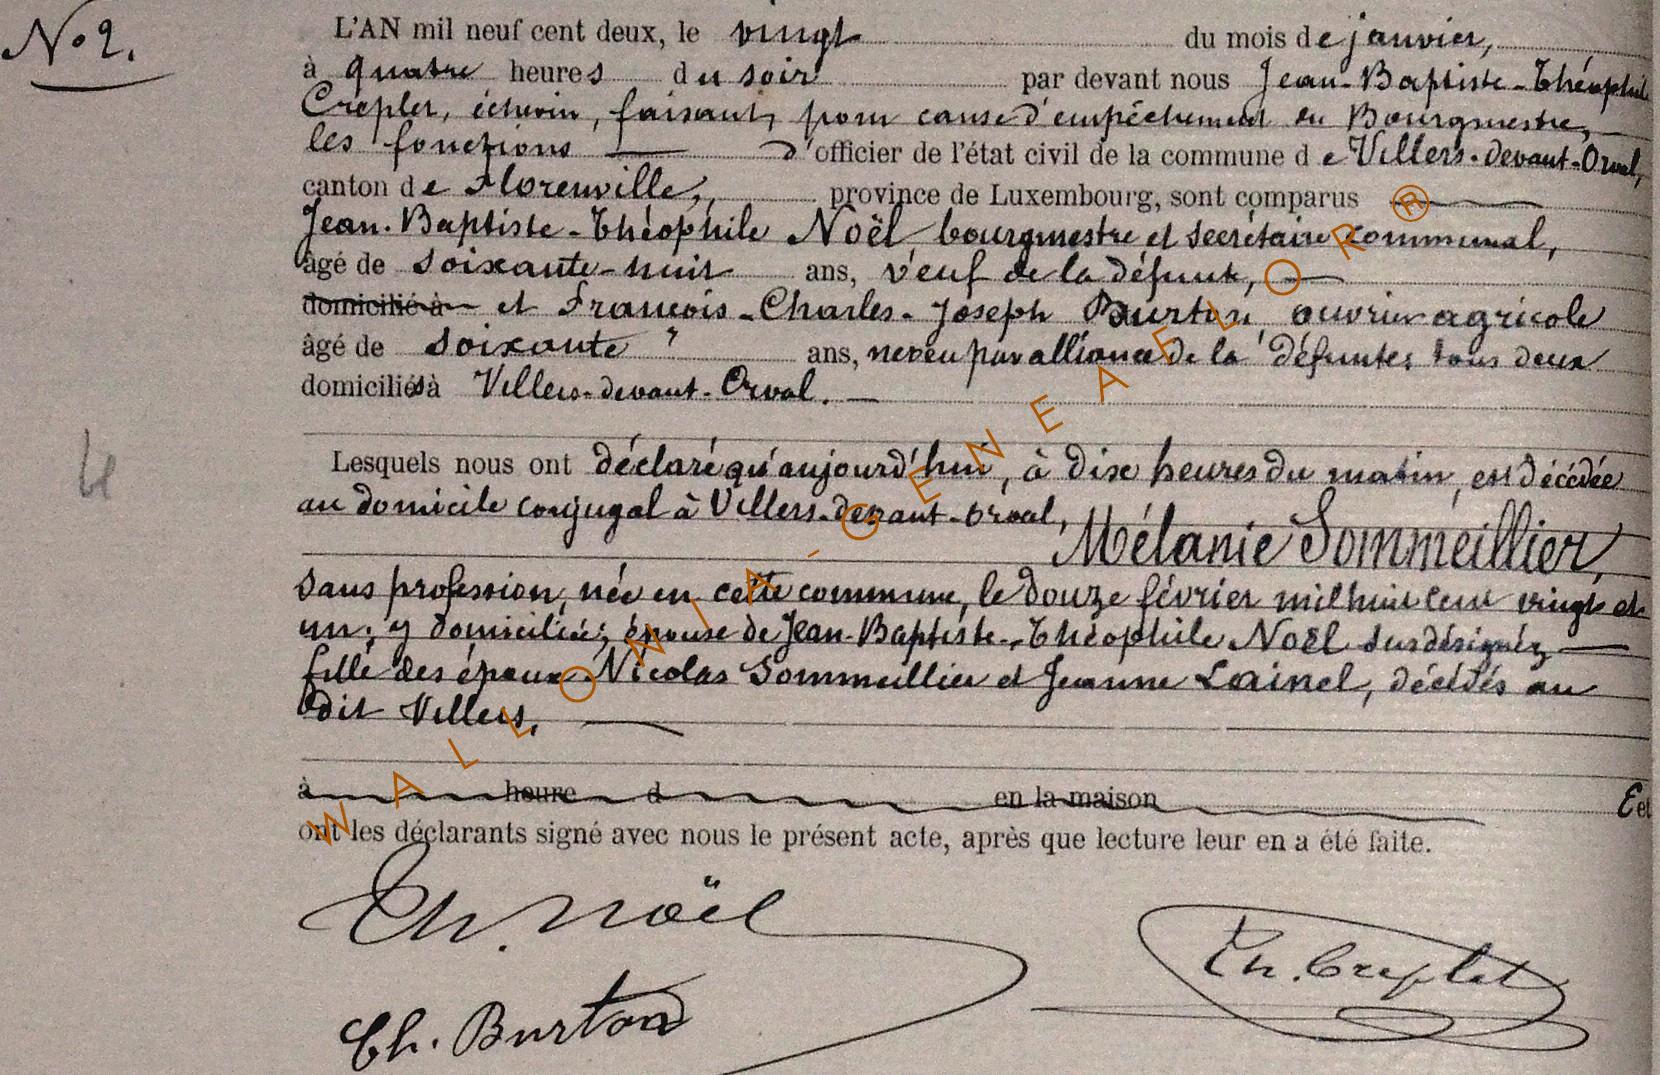 No 2.
L'AN mil neuf cent deux, le vingt du mois de janvier,
à quatre heures du soir par devant nous Jean-Baptiste-Théophile
Creplet, échevin, faisant, pour cause d'empêchement du Bourgmestre,
les fonctions d'officier de l'état civil de la commune de Villers-devant-Orval,
canton de Florenville, province de Luxembourg, sont comparus
Jean-Baptiste-Théophile Noël bourgmestre et secrétaire communal,
âgé de soixante-huit ans, veuf de la défunte,
domicilié à et François-Charles-Joseph Burton, ouvrier agricole
âgé de soixante ans, neveu par alliance de la défunte; tous deux
domiciliés à Villers-devant-Orval.
Lesquels nous ont déclaré qu'aujourd'hui, à dix heures du matin, est décédée
au domicile conjugal à Villers-devant-Orval,
Mélanie Sommeillier,
sans profession, née en cette commune, le douze février mil huit cent vingt et
un; y domiciliée; épouse de Jean-Baptiste-Théophile Noël susdésigné,
fille des époux Nicolas Sommeillier et Jeanne Lainel, décédés au
dit Villers.
à heure d en la maison Et
ont les déclarants signé avec nous le présent acte, après que lecture leur en a été faite.
Th. Noël
Th. Creplet
Ch. Burton
WALLONIA-GENEAFLOR®